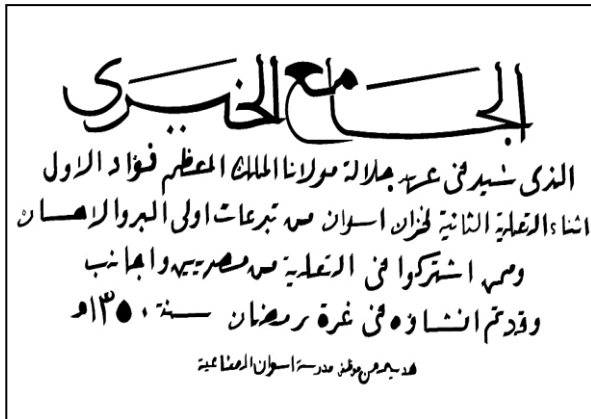 الجامع الخيرى
الذى شيد فى عهد جلالة مولانا الملك المعظم فؤاد الاول
اثناء التعلية الثانية لخزان اسوان من تبرعات اولى البر والاحسان
وممن اشتركوا فى التعلية من مصريين واجانب
وقد تم انشاؤه فى غرة رمضان سنة ١٣٥٠هـ
هدية من موظفى مدرسة اسوان الصناعية